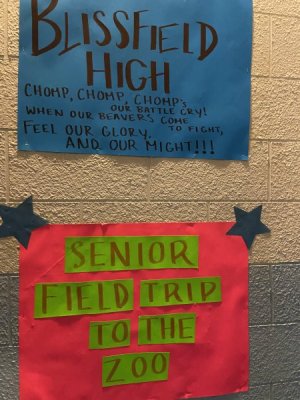 BLISSFIELD
HIGH
CHOMP, CHOMP, CHOMP'S
OUR BATTLE CRY!
WHEN OUR BEAVERS COME
TO FIGHT,
FEEL OUR GLORY,
AND OUR MIGHT!!!
SENIOR
FIELD TRIP
TO THE
ZOO